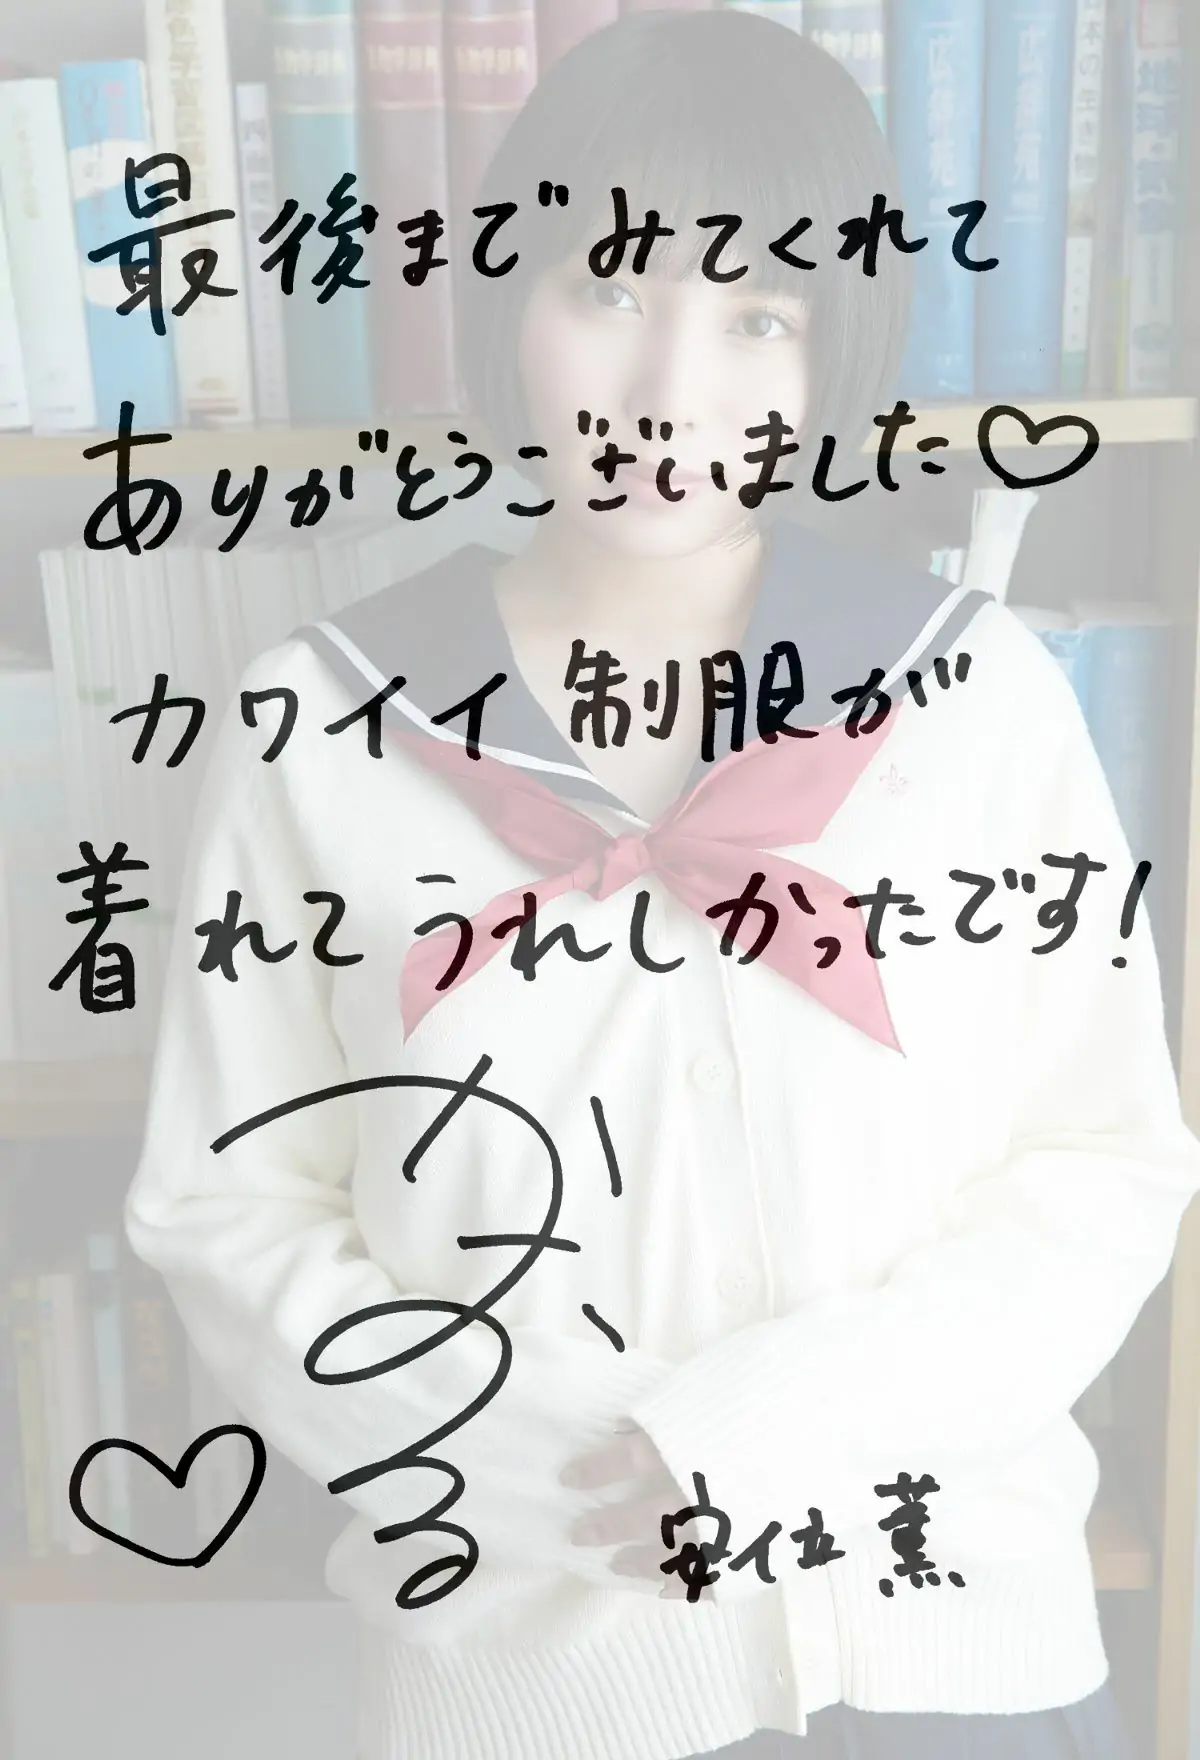 最後までみてくれて
ありがとうございました♡
カワイイ制服が
着れてうれしかったです!
かおる
安位薫
広辞苑
広辞苑